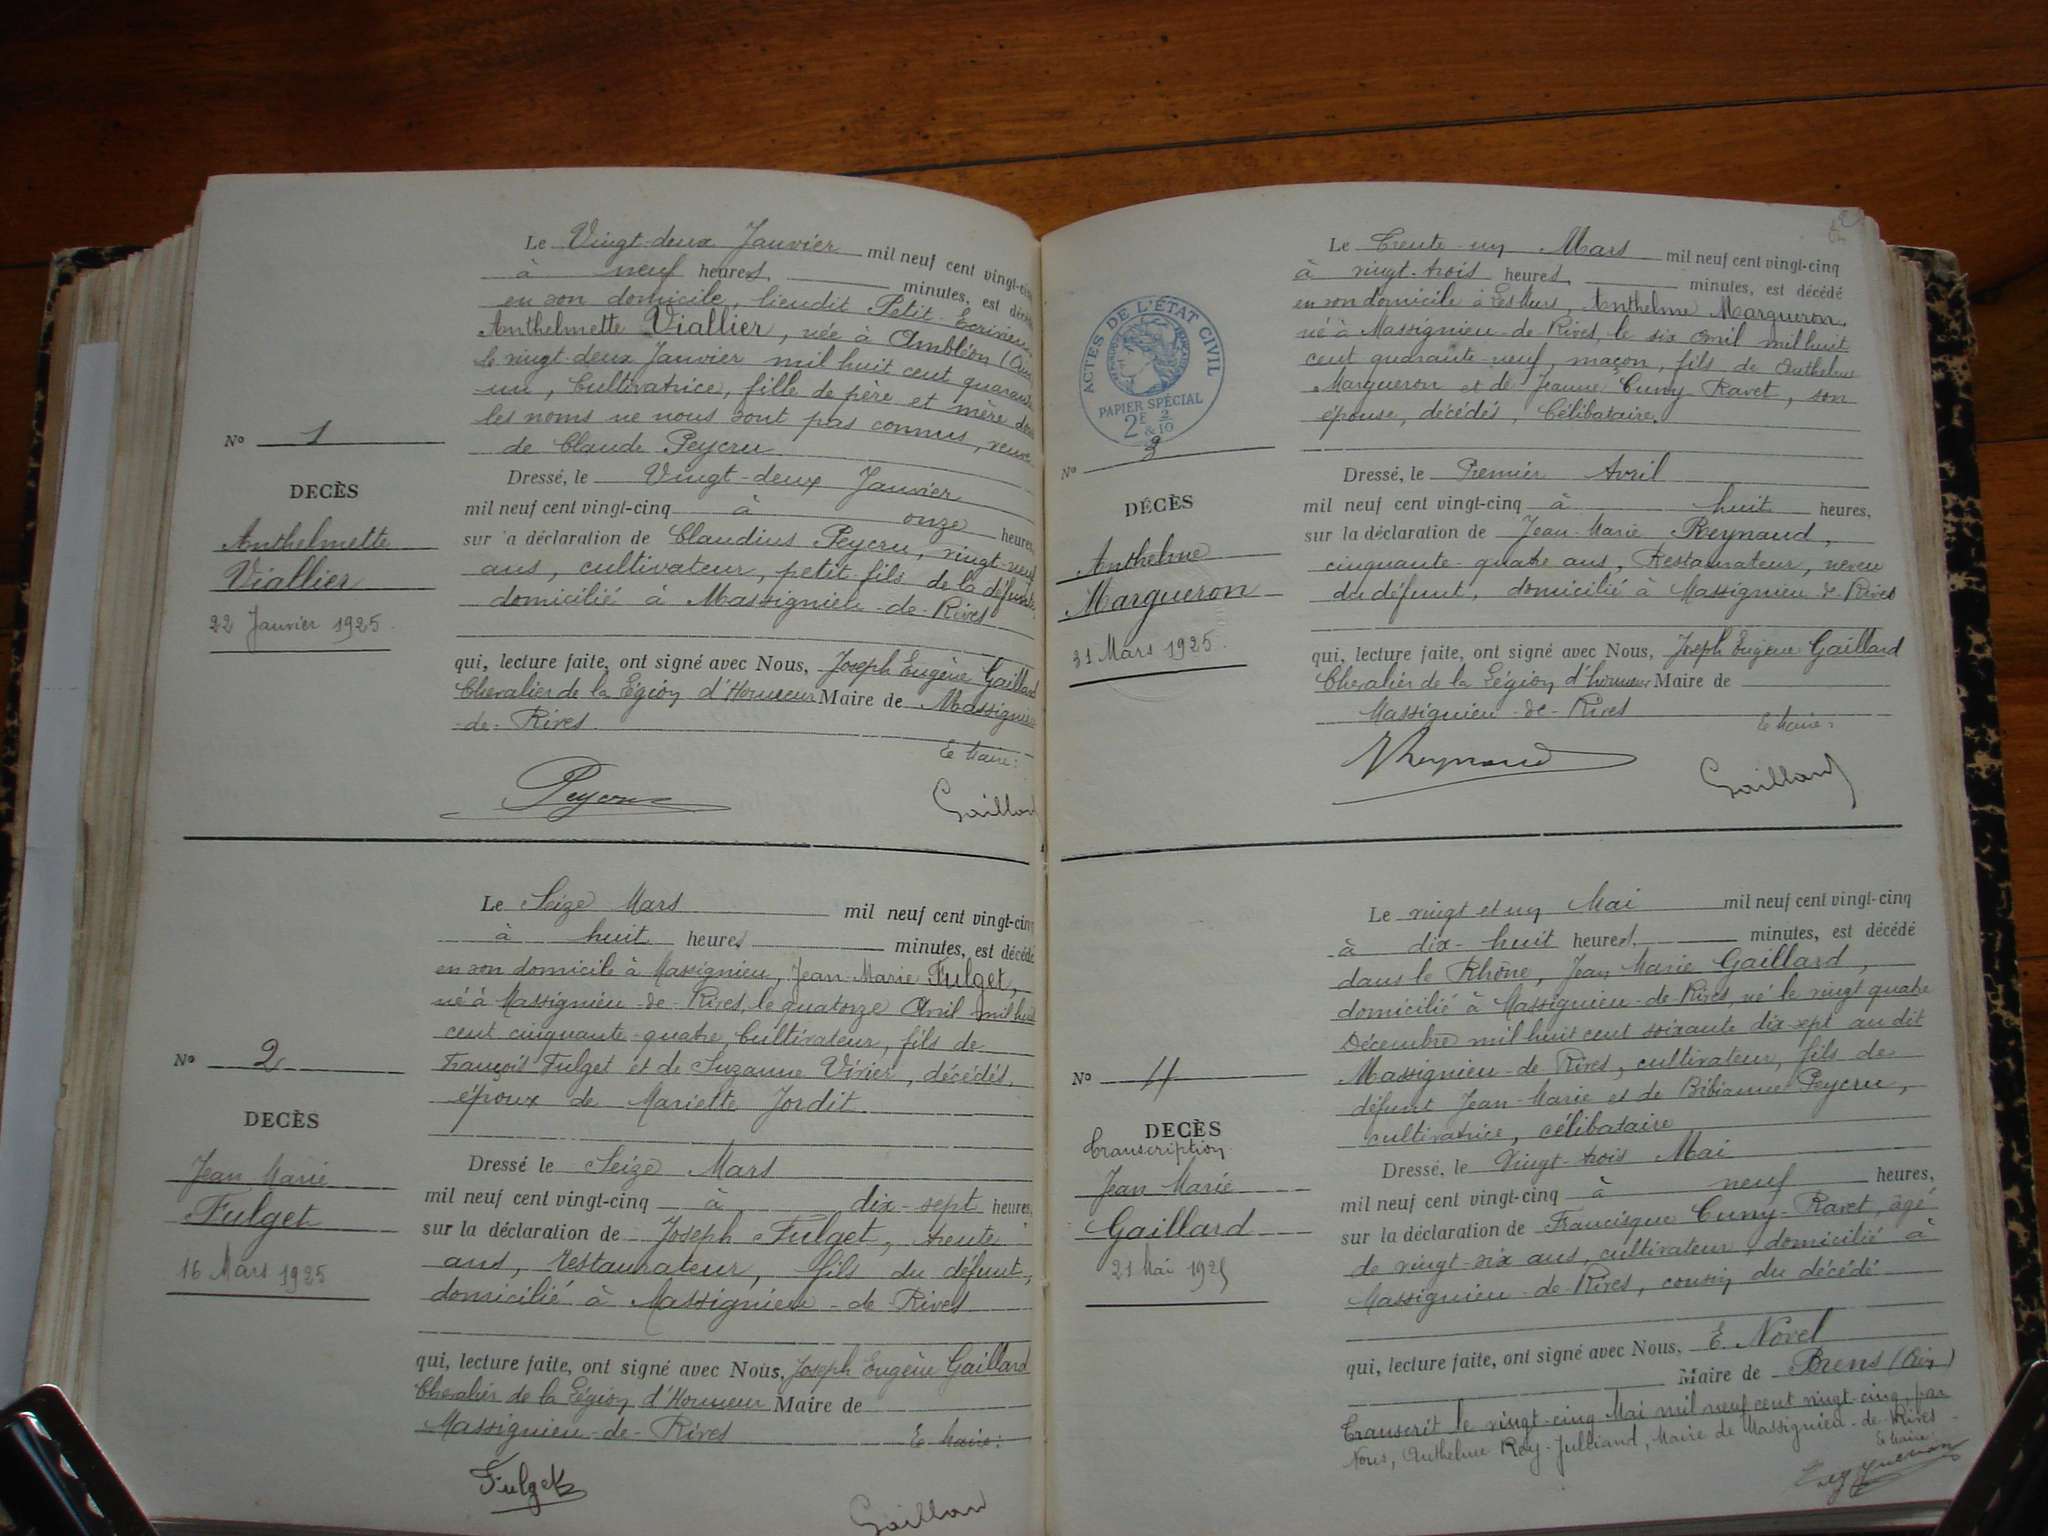 Le Vingt-deux Janvier mil neuf cent vingt-cinq
à neuf heures, minutes, est décédée
en son domicile, lieudit Petit-Ecrivieu
Anthelmette Viallier, née à Ambléon (Ain)
le vingt-deux Janvier mil huit cent quarante
un, Cultivatrice, fille de père et mère dont
les noms ne nous sont pas connus, veuve
de Claude Peycru
Nº 1
DECÈS
Anthelmette
Viallier
22 Janvier 1925.
Dressé, le Vingt-deux Janvier
mil neuf cent vingt-cinq à onze heures,
sur a déclaration de Claudius Peycru, vingt-neuf
ans, cultivateur, petit-fils de la défunte,
domicilié à Massignieu-de-Rives
qui, lecture faite, ont signé avec Nous, Joseph Eugène Gaillard
Chevalier de la Légion d'Honneur Maire de Massignieu
-de-Rives
Le Maire:
Peycru
Gaillard
Le Seize Mars mil neuf cent vingt-cinq
à huit heures minutes, est décédé
en son domicile à Massignieu, Jean-Marie Fulget,
né à Massignieu-de-Rives, le quatorze Avril mil huit
cent cinquante-quatre, Cultivateur, fils de
François Fulget et de Suzanne Vivier, décédés,
époux de Mariette Jordit
Nº 2
DECÈS
Jean Marie
Fulget
16 Mars 1925
Dressé le Seize Mars
mil neuf cent vingt-cinq à dix-sept heures,
sur la déclaration de Joseph Fulget, trente
ans, restaurateur, fils du défunt,
domicilié à Massignieu-de-Rives
qui, lecture faite, ont signé avec Nous, Joseph Eugène Gaillard
Chevalier de la Légion d'Honneur Maire de
Massignieu-de-Rives Le Maire:
Fulget
Gaillard
Le Trente-un Mars mil neuf cent vingt-cinq
à vingt-trois heures, minutes, est décédé
en son domicile à , Anthelme Margueron,
né à Massignieu-de-Rives, le six Avril mil huit
cent quarante-neuf, maçon, fils de Anthelme
Margueron et de Jeanne Cuny-Ravet, son
épouse, décédés, Célibataire.
ACTES DE L'ÉTAT CIVIL
PAPIER SPÉCIAL
2F & 2/10
Nº 3
DÉCÈS
Anthelme
Margueron
31 Mars 1925.
Dressé, le Premier Avril
mil neuf cent vingt-cinq à huit heures,
sur la déclaration de Jean-Marie Reynaud,
cinquante-quatre ans, Restaurateur, neveu
du défunt, domicilié à Massignieu-de-Rives
qui, lecture faite, ont signé avec Nous, Joseph Eugène Gaillard
Chevalier de la Légion d'honneur Maire de
Massignieu-de-Rives
Le Maire:
Reynaud
Gaillard
Le vingt et un Mai mil neuf cent vingt-cinq
à dix-huit heures, minutes, est décédé
dans le Rhône, Jean Marie Gaillard,
domicilié à Massignieu-de-Rives, né le vingt quatre
Décembre mil huit cent soixante dix-sept au dit
Massignieu-de-Rives, cultivateur, fils de
défunt Jean-Marie et de Bibianne Peycru,
cultivatrice, célibataire
Nº 4
DECÈS
Transcription
Jean Marie
Gaillard
21 Mai 1925
Dressé, le Vingt-trois Mai
mil neuf cent vingt-cinq à neuf heures,
sur la déclaration de Francisque Cuny-Ravet, âgé
de vingt-six ans, cultivateur, domicilié à
Massignieu-de-Rives, cousin du décédé
qui, lecture faite, ont signé avec Nous, E. Novel
Maire de Brens (Ain)
Transcrit le vingt-cinq Mai mil neuf cent vingt-cinq, par
Nous, Anthelme Rey-Julliand, Maire de Massignieu-de-Rives
Le Maire: